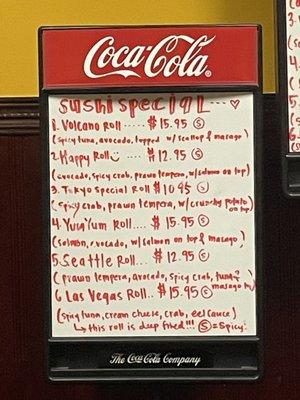 Coca-Cola
Sushi Special
1. Volcano Roll .... $15.95 (S)
(Spicy tuna, avocado, topped w/ scallop & masago)
2. Happy Roll ... $12.95 (S)
(avocado, spicy crab, prawn tempera, w/ salmon on top)
3. Tokyo Special Roll $10.95 (S)
(Spicy crab, prawn tempera, w/ crunchy potato on top)
4. YumYum Roll .... $15.95 (S)
(Salmon, avocado, w/ salmon on top & masago)
5. Seattle Roll ... $12.95 (S)
(prawn tempera, avocado, spicy crab, tuna & masago
6. Las Vegas Roll.. $15.95 (S)
(Spicy tuna, cream cheese, crab, eel sauce)
↳ this roll is deep fried!!! (S) = Spicy
The Coca-Cola Company